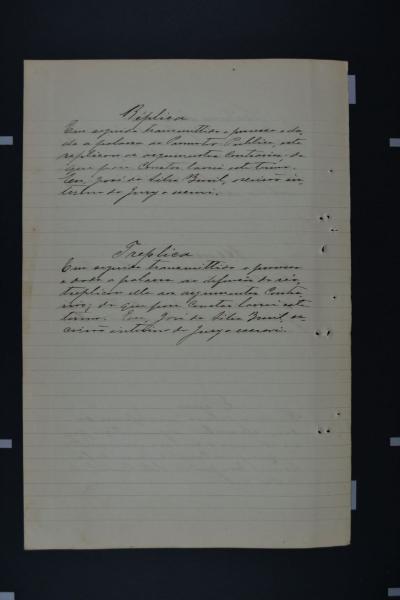 Réplica
Em seguida transmittido o processo e da-
da a palavra ao Promotor Publico, este
replicou os argumentos contrarios; do
que para constar lavrei este termo.
Eu, José da Silva Brasil, escrivão in-
terino do Jury o escrevi.
Treplica
Em seguida transmittido o processo
e dada a palavra ao defensor do réo,
treplicou elle aos argumentos contra-
rios; do que para constar lavrei este
termo. Eu, José da Silva Brasil, es-
crivão interino do Jury o escrevi.